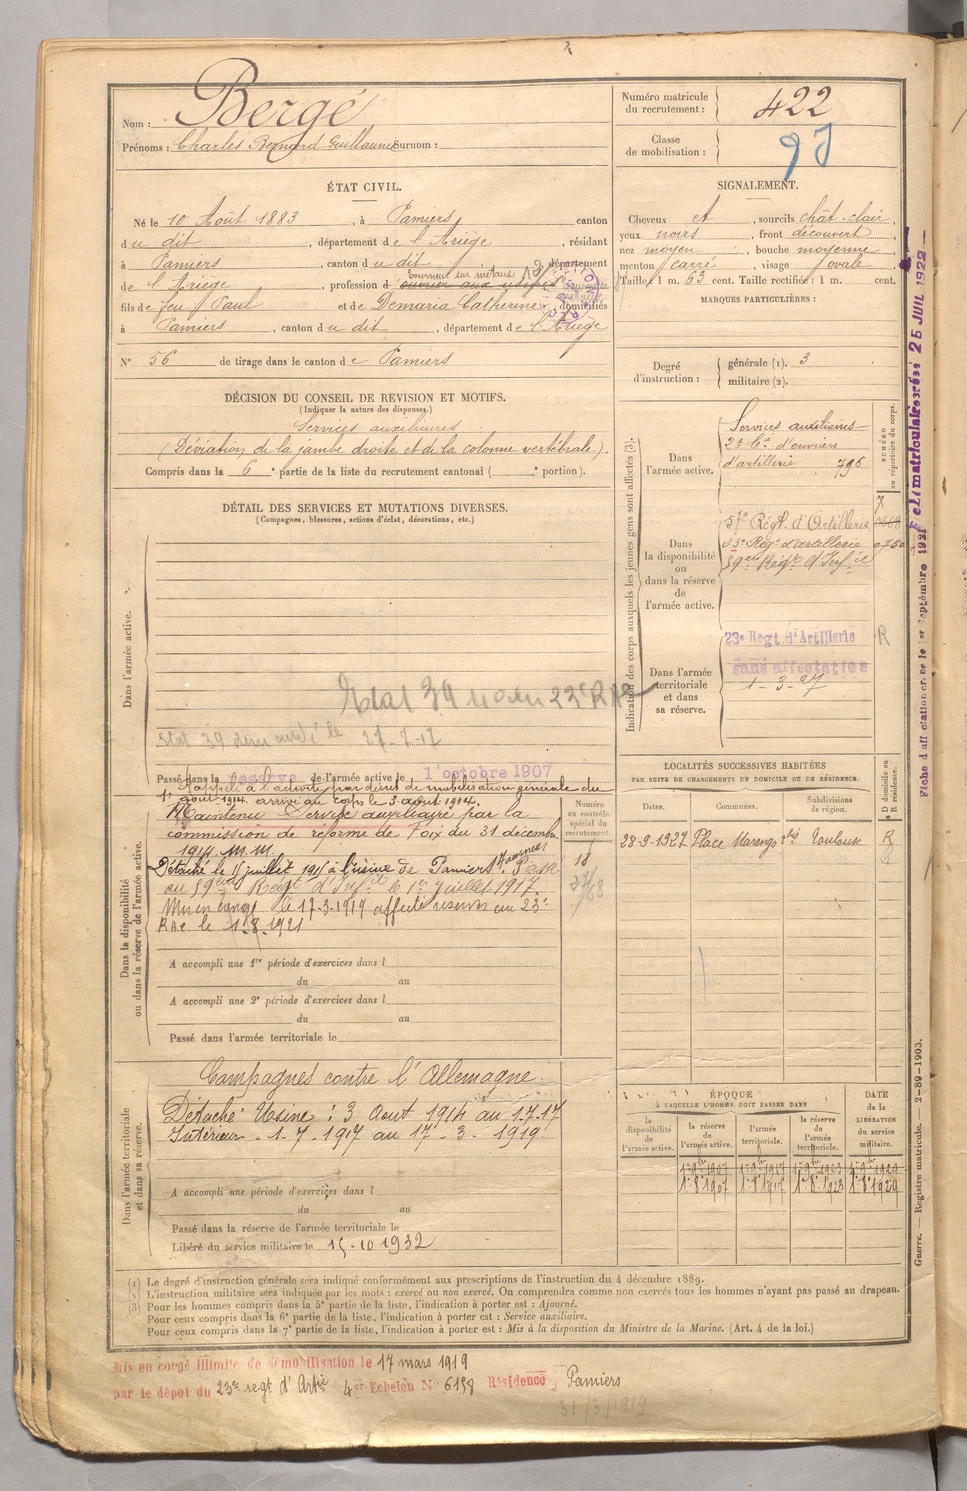 Nom : Bergé
Prénoms : Charles Bernard Guillaume Surnom :
Numéro matricule du recrutement : 422
Classe de mobilisation :
ÉTAT CIVIL.
Né le 10 Août 1883, à Pamiers, canton
du dit, département de l'Ariège, résidant
à Pamiers, canton du dit, département
de l'Ariège, profession d ouvrier aux usines
tourneur sur métaux
fils de feu Paul et de Demaria Catherine, domiciliés
à Pamiers, canton du dit, département de l'Ariège
N° 56 de tirage dans le canton de Pamiers
SIGNALEMENT.
Cheveux et, sourcils chât. clair,
yeux noirs, front découvert
nez moyen, bouche moyenne
menton carré, visage ovale
Taille : 1 m. 63 cent. Taille rectifiée : 1 m. cent.
MARQUES PARTICULIÈRES :
Degré d'instruction : générale (1). 3
militaire (2).
DÉCISION DU CONSEIL DE REVISION ET MOTIFS.
(Indiquer la nature des dispenses.)
Services auxiliaires
(Déviation de la jambe droite et de la colonne vertébrale).
Compris dans la 6e partie de la liste du recrutement cantonal ( e portion).
DÉTAIL DES SERVICES ET MUTATIONS DIVERSES.
(Campagnes, blessures, actions d'éclat, décorations, etc.)
Dans l'armée active.
Etat 39 23e RA
Etat 39 le 27-7-17
Passé dans la réserve de l'armée active le 1 octobre 1907
Rappelé à l'activité par décret de mobilisation générale du
1er août 1914. arrivé au corps le 3 août 1914.
Maintenu Service auxiliaire par la
commission de réforme de Foix du 31 décembre
1914. M.M.
Détaché le 15 juillet 1915 à l'usine de Pamiers. Passé
au 59ème Régt d'Infie le 1er juillet 1917.
Mis en congé le 17-3-1919 affecté réserve au 23e
RAC. le 1.8.1921
Dans la disponibilité ou dans la réserve de l'armée active.
Numéro au contrôle spécial du recrutement
A accompli une 1re période d'exercices dans l
du au
A accompli une 2e période d'exercices dans l
du au
Passé dans l'armée territoriale le
Dans l'armée territoriale et dans sa réserve.
Campagnes contre l'Allemagne.
Détaché Usine : 3 Aout 1914 au 1.7.17
Intérieur - 1-7-1917 au 17-3-1919.
A accompli une période d'exercices dans l
du au
Passé dans la réserve de l'armée territoriale le
Libéré du service militaire le 15-10 1932
Indication des corps auxquels les jeunes gens sont affectés (3).
NUMÉRO au répertoire du corps.
Dans l'armée active.
Services auxiliaires
2e Cie d'ouvriers
d'artillerie 796
Dans la disponibilité ou dans la réserve de l'armée active.
57e Régt d'Artillerie
23e Régt d'artillerie
59ème Régt d'Infie
Dans l'armée territoriale et dans sa réserve.
23e Regt d'Artillerie R
sans affectation
1-3-27
LOCALITÉS SUCCESSIVES HABITÉES
PAR SUITE DE CHANGEMENTS DE DOMICILE OU DE RÉSIDENCE.
Dates. Communes. Subdivisions de région. D domicile ou R résidence.
28-9-1927 Place Marengo Toulouse R
ÉPOQUE
À LAQUELLE L'HOMME DOIT PASSER DANS
la disponibilité de l'armée active.
la réserve de l'armée active.
l'armée territoriale.
la réserve de l'armée territoriale.
DATE de la LIBÉRATION du service militaire.
1-8-1907 1-8-1917 1-8-1923 1-8-1929
(1) Le degré d'instruction générale sera indiqué conformément aux prescriptions de l'instruction du 4 décembre 1889.
(2) L'instruction militaire sera indiquée par les mots : exercé ou non exercé. On comprendra comme non exercés tous les hommes n'ayant pas passé au drapeau.
(3) Pour les hommes compris dans la 5e partie de la liste, l'indication à porter est : Ajourné.
Pour ceux compris dans la 6e partie de la liste, l'indication à porter est : Service auxiliaire.
Pour ceux compris dans la 7e partie de la liste, l'indication à porter est : Mis à la disposition du Ministre de la Marine. (Art. 4 de la loi.)
Mis en congé illimité de démobilisation le 17 mars 1919
par le dépôt du 23e regt d'Artie 4e Echelon N° 6198 Résidence Pamiers
31/3/1919
25 JUIL 1922
Guerre. — Registre matricule. 2-89-1903.